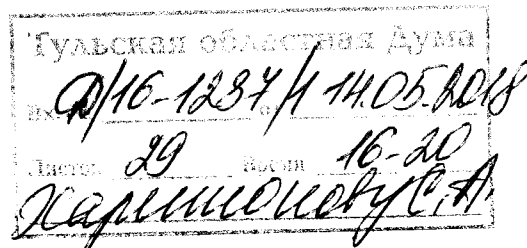 Тульская областная Дума
Вх. Д/16-1237/1 от 14.05.2018
Листов 29 Время 16-20
Харитонову С.А.